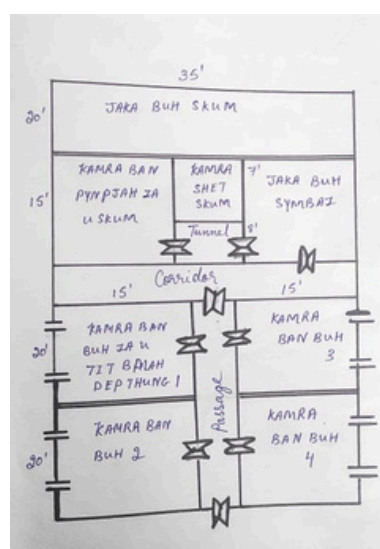 35'
20'
JAKA BUH SKUM
KAMRA BAN
PYNPJAH IA
U SKUM
KAMRA
SHET
SKUM
7'
JAKA BUH
SYMBAI
15'
Tunnel
8'
Corridor
15'
15'
KAMRA BAN
BUH IA U
TIT BALAH
DEP THUNG 1
20'
KAMRA
BAN BUH
3
Passage
KAMRA BAN
BUH 2
20'
KAMRA
BAN BUH
4